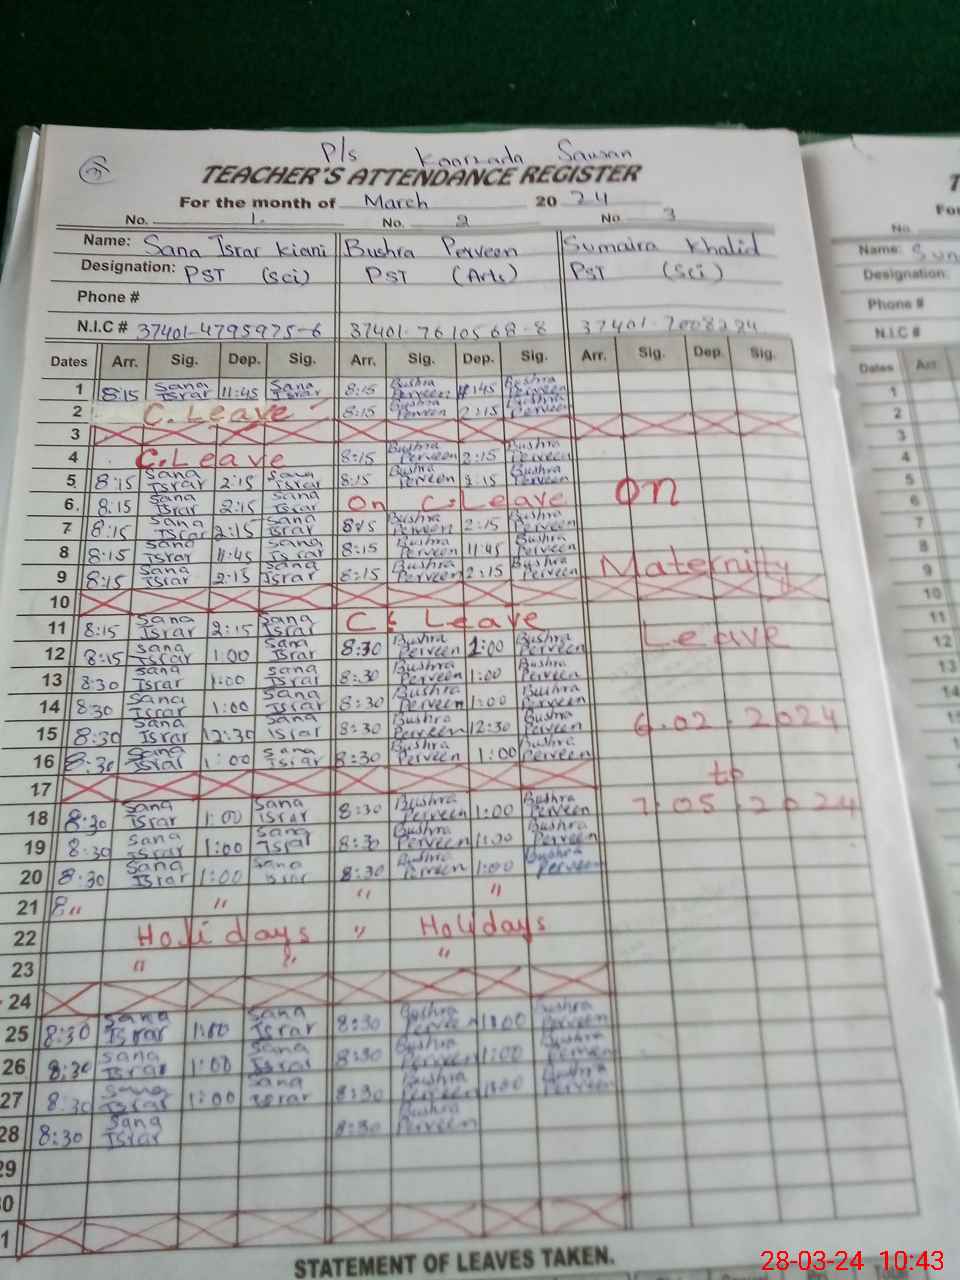 P/s Kaarzada Sawan
TEACHER'S ATTENDANCE REGISTER
For the month of March 20 24
No. 1. No. 2 No 3
Name: Sana Israr Kiani Bushra Perveen Sumaira Khalid
Designation: PST (Sci) PST (Arts) PST (Sci)
Phone #
N.I.C # 37401-4795975-6 37401-7610568-8
Dates Arr. Sig. Dep. Sig. Arr. Sig. Dep. Sig. Arr. Sig. Dep. Sig.
1 8:15 Sana Israr 11:45 Sana Israr 8:15 Bushra Perveen 11:45 Bushra Perveen
2 C. Leave 8:15 Bushra Perveen 2:15 Bushra Perveen
3
4 C. Leave 8:15 Bushra Perveen 2:15 Bushra Perveen
5 8:15 Sana Israr 2:15 Sana Israr 8:15 Bushra Perveen 2:15 Bushra Perveen
6. 8:15 Sana Israr 2:15 Sana Israr On C. Leave on
7 8:15 Sana Israr 2:15 Sana Israr 8:15 Bushra Perveen 2:15 Bushra Perveen
8 8:15 Sana Israr 11:45 Sana Israr 8:15 Bushra Perveen 11:45 Bushra Perveen
9 8:15 Sana Israr 2:15 Sana Israr 8:15 Bushra Perveen 2:15 Bushra Perveen Maternity
10
11 8:15 Sana Israr 2:15 Sana Israr C: Leave Leave
12 8:15 Sana Israr 1:00 Sana Israr 8:30 Bushra Perveen 1:00 Bushra Perveen
13 8:30 Sana Israr 1:00 Sana Israr 8:30 Bushra Perveen 1:00 Bushra Perveen
14 8:30 Sana Israr 1:00 Sana Israr 8:30 Bushra Perveen 1:00 Bushra Perveen
15 8:30 Sana Israr 12:30 Sana Israr 8:30 Bushra Perveen 12:30 Bushra Perveen 6.02.2024
16 8:30 Sana Israr 1:00 Sana Israr 8:30 Bushra Perveen 1:00 Bushra Perveen
17 to
18 8:30 Sana Israr 1:00 Sana Israr 8:30 Bushra Perveen 1:00 Bushra Perveen 7.05.2024
19 8:30 Sana Israr 1:00 Sana Israr 8:30 Bushra Perveen 1:00 Bushra Perveen
20 8:30 Sana Israr 1:00 Sana Israr 8:30 Bushra Perveen 1:00 Bushra Perveen
21 8 " " " "
22 Holidays " Holidays
23 " " "
24
25 8:30 Sana Israr 1:00 Sana Israr 8:30 Bushra Perveen 1:00 Bushra Perveen
26 8:30 Sana Israr 1:00 Sana Israr 8:30 Bushra Perveen 1:00 Bushra Perveen
27 8:30 Sana Israr 1:00 Sana Israr 8:30 Bushra Perveen 1:00 Bushra Perveen
28 8:30 Sana Israr 8:30 Bushra Perveen
29
0
1
STATEMENT OF LEAVES TAKEN.
No.
Name:
Designation:
Phone #
N.I.C #
Dates Arr.
1
2
3
4
5
6
7
8
9
10
11
12
13
14
28-03-24 10:43